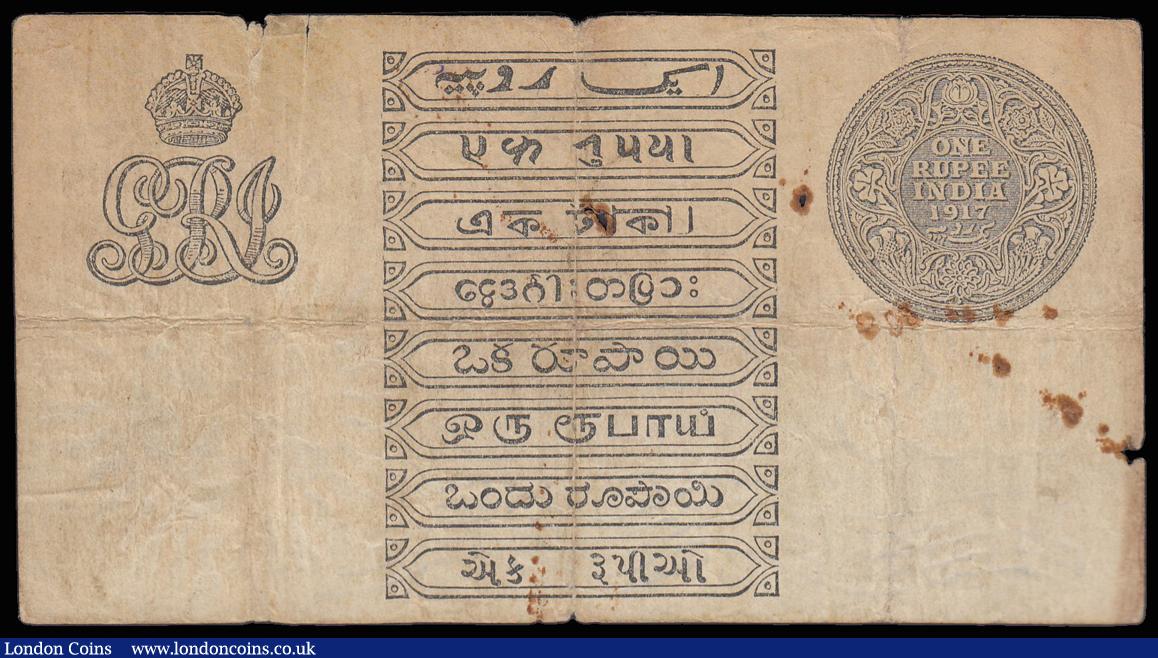 GRI
ایک روپیہ
एक रुपया
এক টাকা
ఒక రూపాయి
ஒரு ரூபாய்
ಒಂದು ರೂಪಾಯಿ
એક રૂપીઓ
ONE
RUPEE
INDIA
1917
London Coins www.londoncoins.co.uk